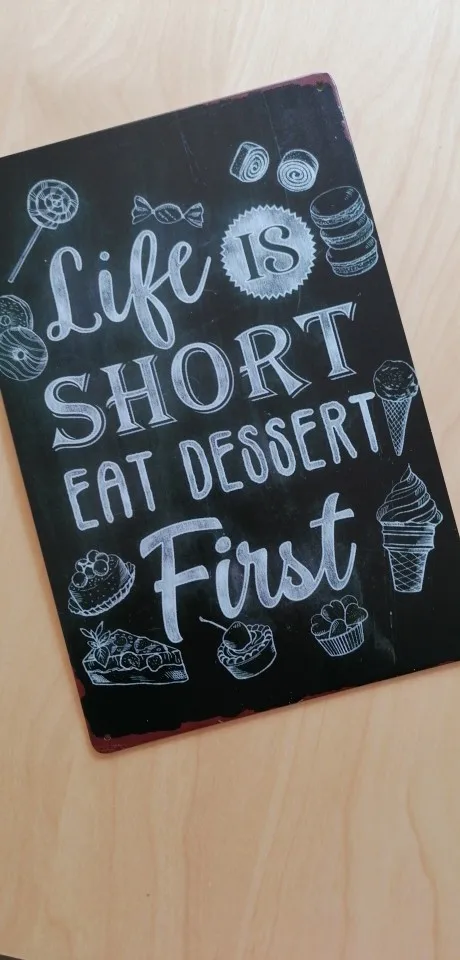 Life IS
SHORT
EAT DESSERT
First